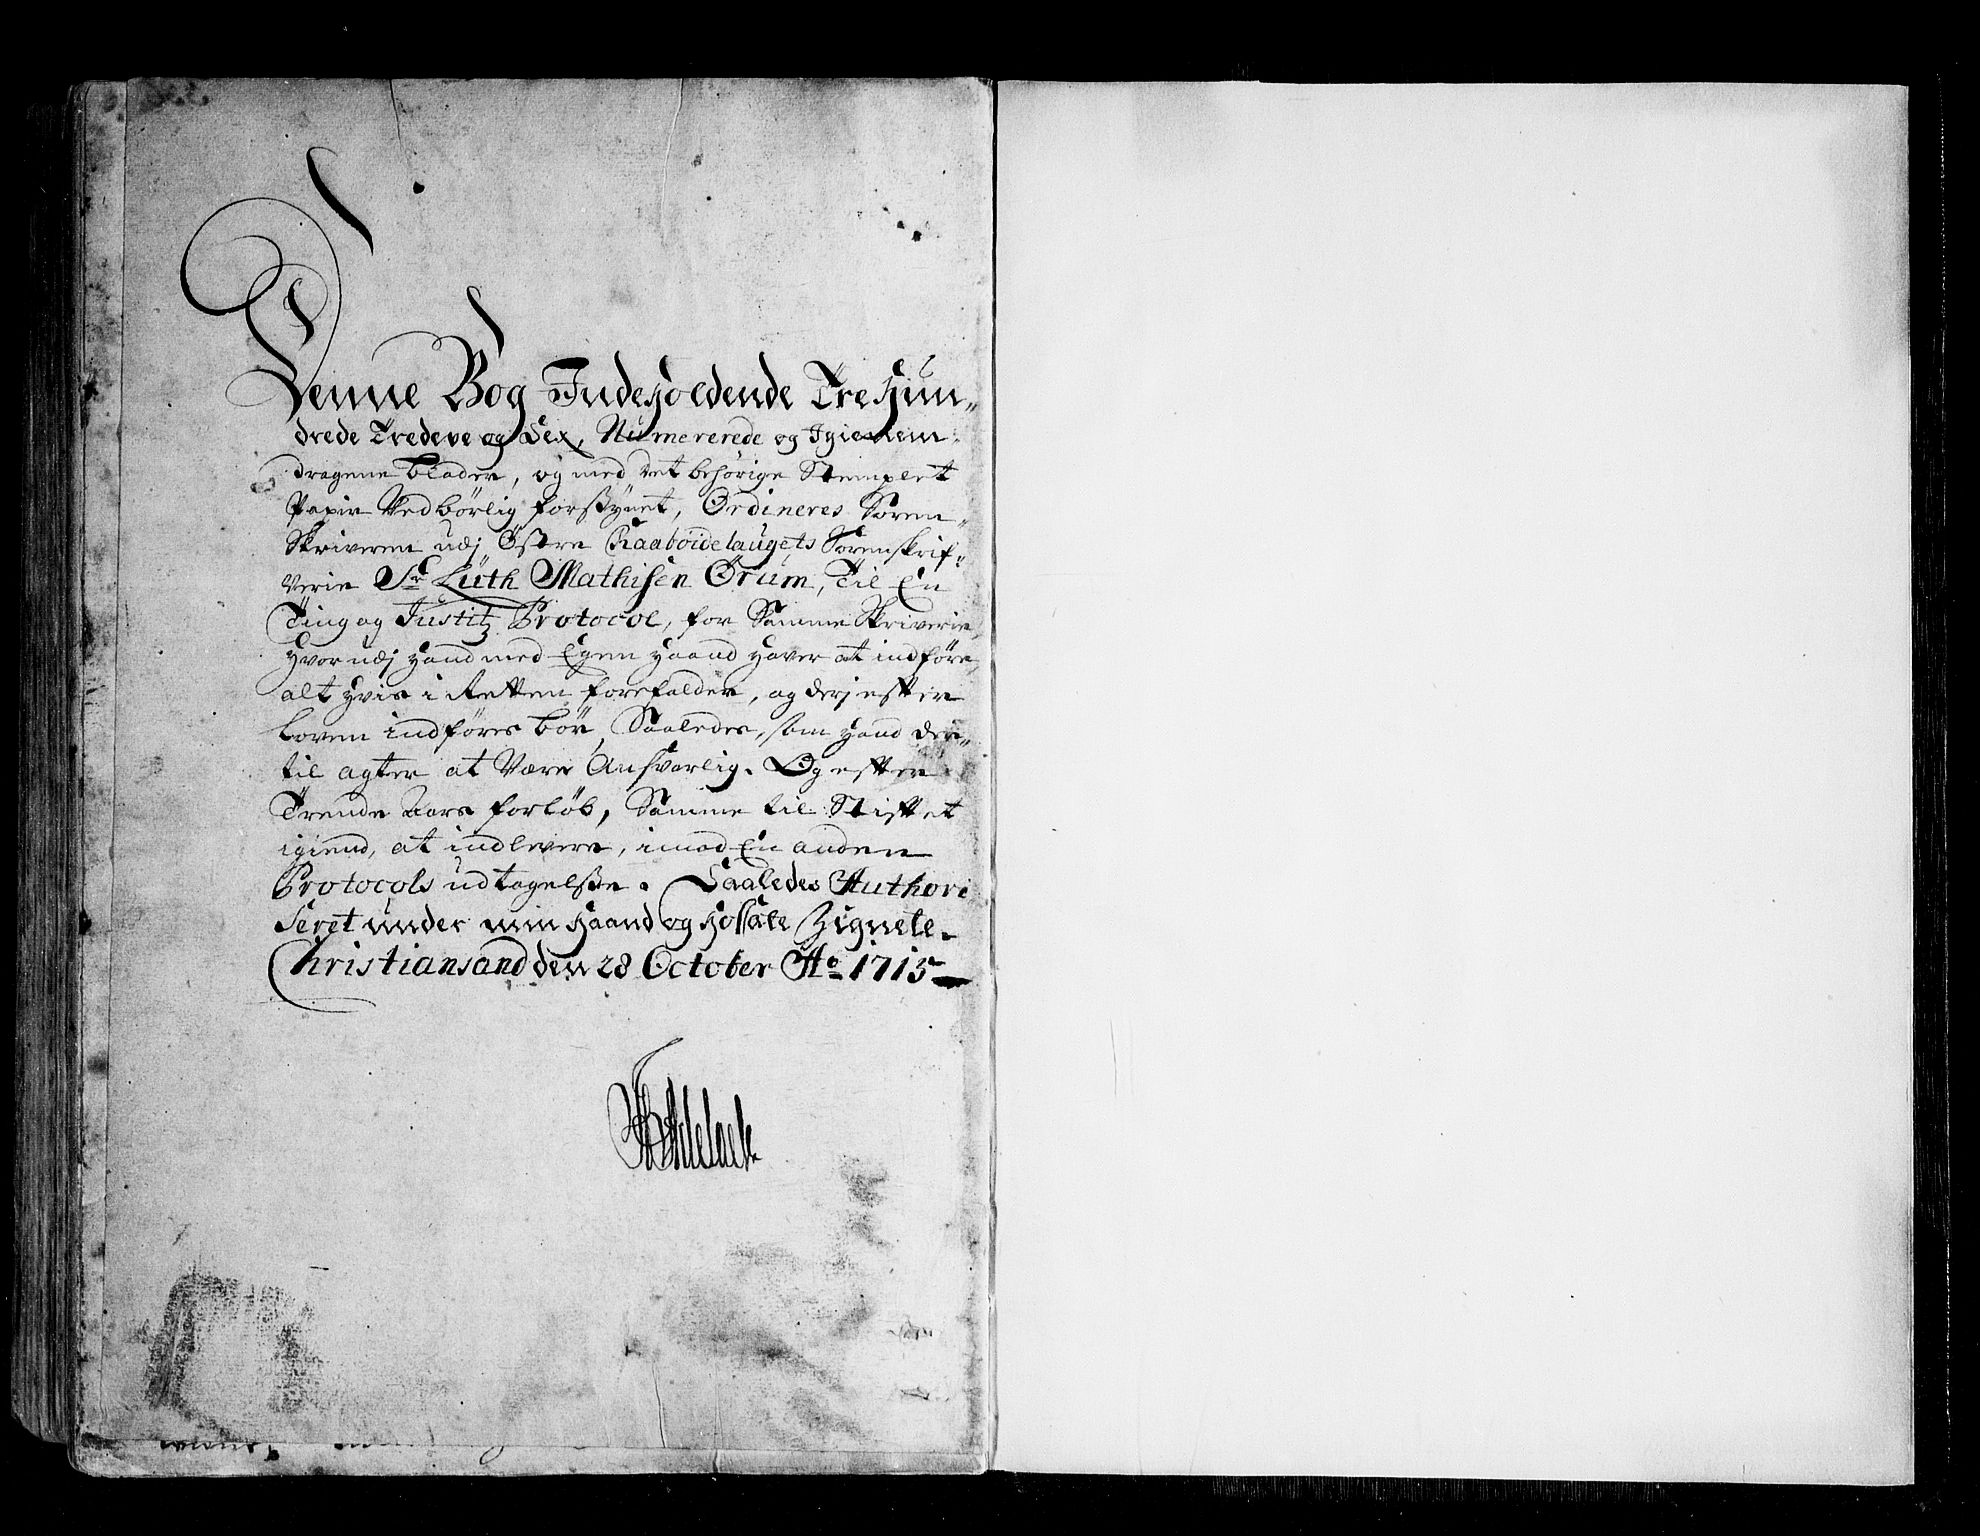 Denne Bog Indeholdende Trehun„
drede Tredeve og Sex, Numererede og Igienem„
dragene blader, og med det behörige Stemplet
Papir Vedbörlig forsÿnet, Ordineres Soren„
Skriveren udj Östre Raaböidelaugets Sorenskrif„
verie Sr Lüth Mathisen Ørum, Til En
Ting og Justitz Protocol, for Samme Skriverie,
Hvor udj Hand med Egen Haand Haver at indföre,
alt Hvis i Retten forefalder, og derj efter
Loven indföres bör, Saaledes, som Hand der„
til agter at Være Ansvarlig. Og efter
Trende Aars forlöb, Samme til Stiftet
igiend, at indlevere, imod En anden
Protocols udtagelße. Saaledes Authori
Seret under min Haand og Hossatte Zignete.
Christiansand den 28 October Ao 1715